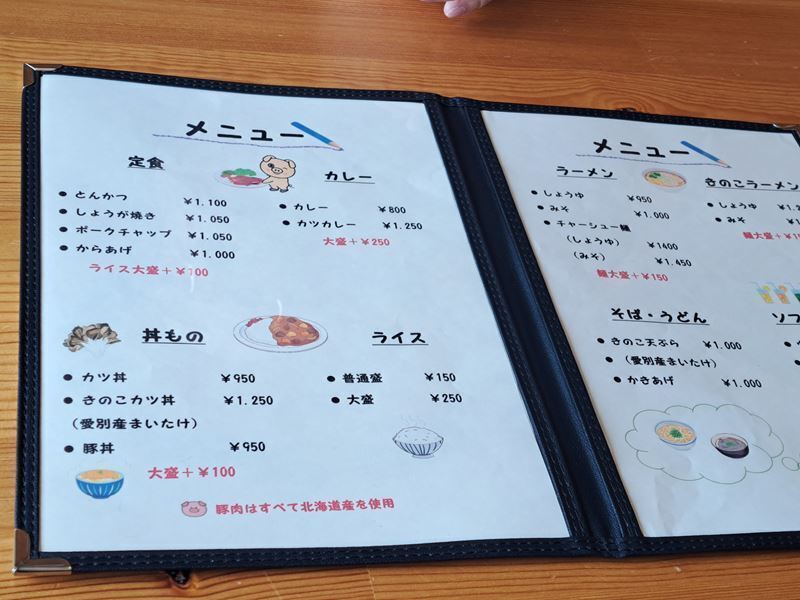 メニュー
定食
● とんかつ ¥1.100
● しょうが焼き ¥1.050
● ポークチャップ ¥1.050
● からあげ ¥1.000
ライス大盛+¥100
カレー
● カレー ¥800
● カツカレー ¥1.250
大盛+¥250
丼もの
● カツ丼 ¥950
● きのこカツ丼 ¥1.250
(愛別産まいたけ)
● 豚丼 ¥950
大盛+¥100
ライス
● 普通盛 ¥150
● 大盛 ¥250
豚肉はすべて北海道産を使用
メニュー
ラーメン
● しょうゆ ¥950
● みそ ¥1.000
● チャーシュー麺
(しょうゆ) ¥1400
(みそ) ¥1.450
麺大盛+¥150
きのこラーメン
● しょうゆ
● みそ
麺大盛+
そば・うどん
● きのこ天ぷら ¥1.000
● (愛別産まいたけ)
● かきあげ ¥1.000
ソフ